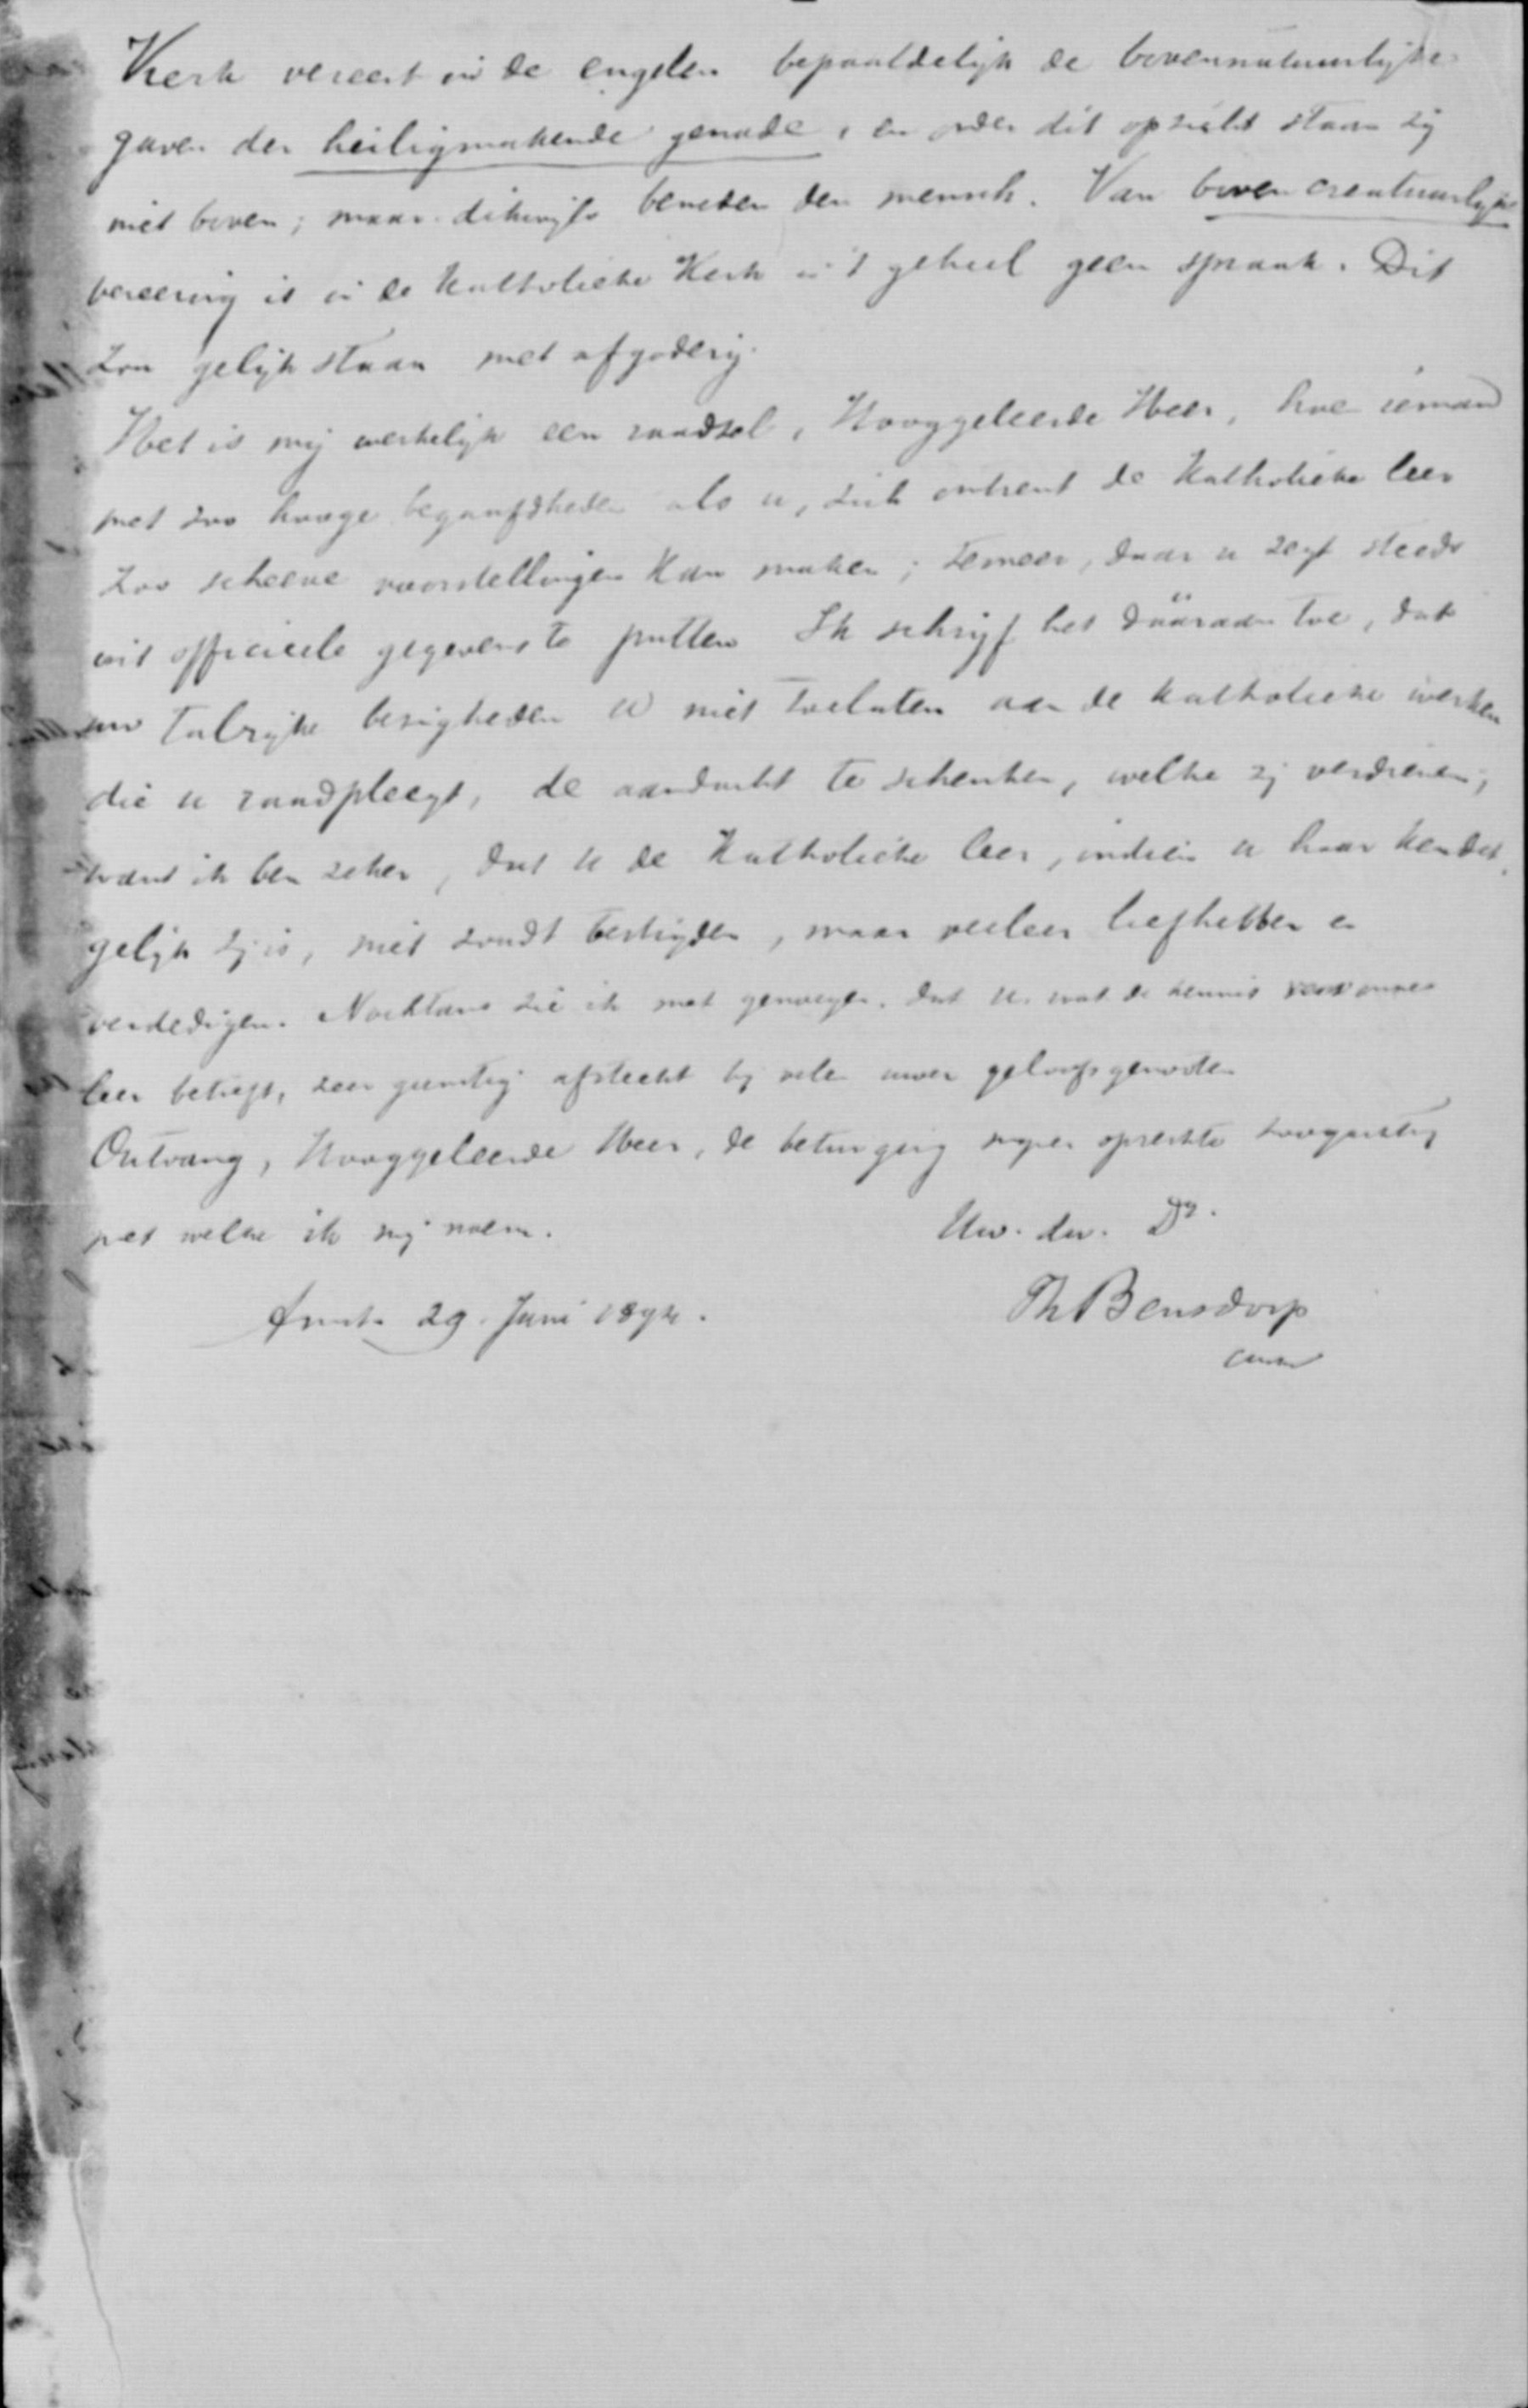 Kerk vereert in de engelen bepaaldelijk de bovennatuurlijke
gaven der heiligmakende genade, en onder dit opzicht staan zij
niet boven; maar dikwijls beneden den mensch. Van boven creatuurlijke
vereering is in de Katholieke Kerk in 't geheel geen spraak. Dit
zou gelijk staan met afgoderij.
Het is mij werkelijk een raadsel, Hooggeleerde Heer, hoe iemand
met zoo hooge begaafdheden als u, zich omtrent de Katholieke leer
zoo scheeve voorstellingen kan maken; temeer, daar u zegt steeds
uit officieele gegevens te putten. Ik schrijf het dááraan toe, dat
uw talrijke bezigheden U niet toelaten aan de Katholieke werken
die u raadpleegt, de aandacht te schenken, welke zij verdienen;
want ik ben zeker, dat U de Katholieke leer, indien u haar kendet,
gelijk zij is, niet zoudt bestrijden, maar veeleer liefhebben en
verdedigen. Nochtans zie ik met genoegen, dat U, wat de kennis van onze
leer betreft, zeer gunstig afsteekt bij vele uwer geloofsgenooten
Ontvang, Hooggeleerde Heer, de betuiging mijner oprechte hoogachting
met welke ik mij noem.
Uw. dw. Dr.
Amst. 29 Juni 1894.
Th Bensdorp